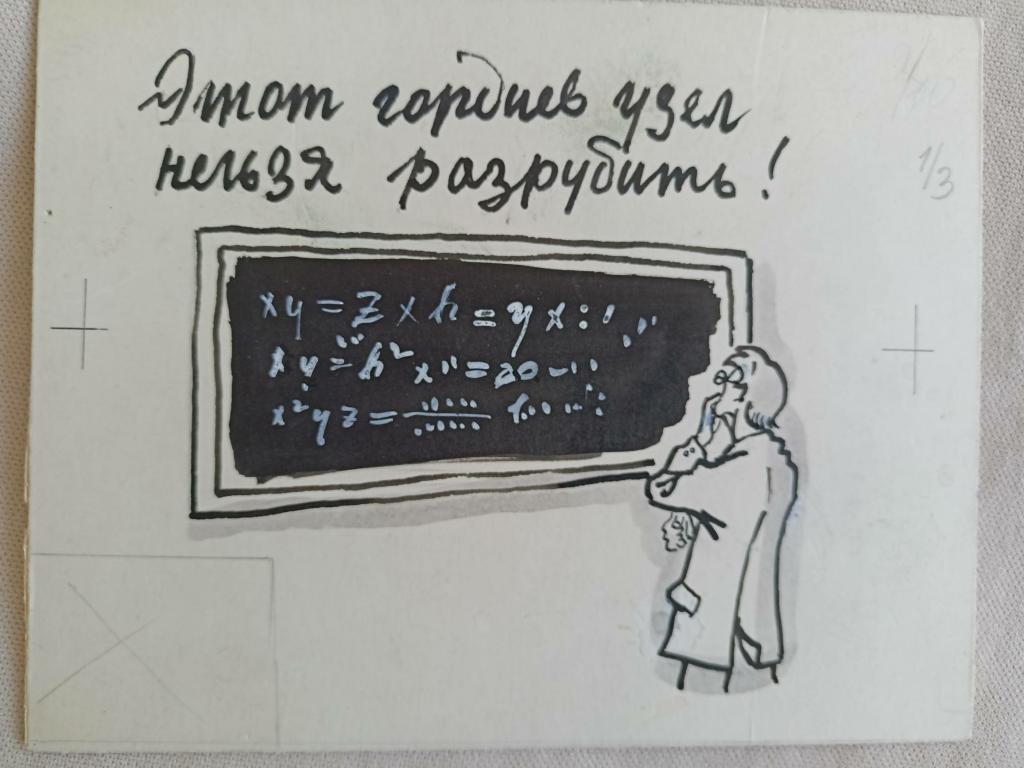 Этот гордиев узел
нельзя разрубить!
1/3
xy = z x h = y x :
xy = h² x" = 20 -
x² y z =